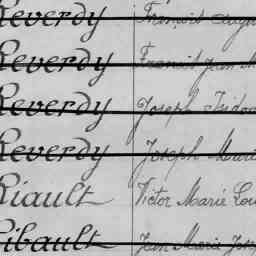 Reverdy François
Reverdy Francois Jean M
Reverdy Joseph Isido
Reverdy Joseph Marie
Riault Victor Marie Lou
Ribault Jean Marie Jos